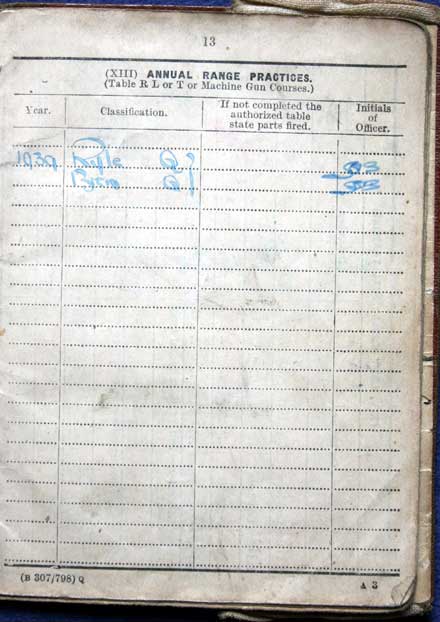 13
(XIII) ANNUAL RANGE PRACTICES.
(Table R L or T or Machine Gun Courses.)
Year. Classification. If not completed the authorized table state parts fired. Initials of Officer.
1939 Rifle Q
Bren Q
(B 307/798) Q A 3